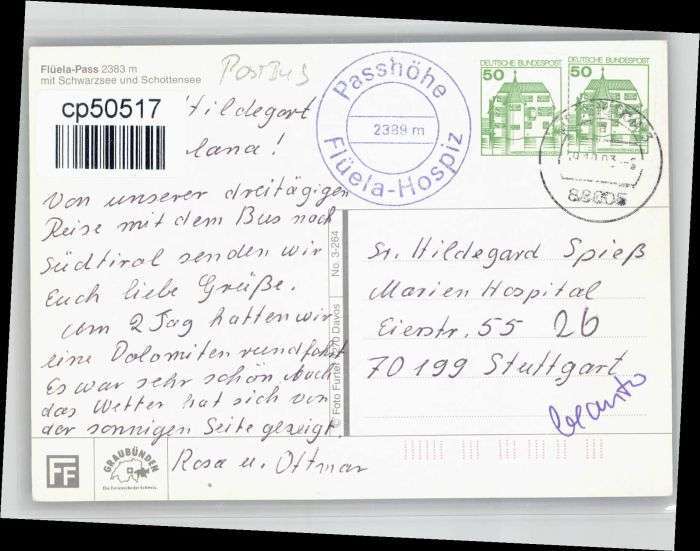 Flüela-Pass 2383 m
mit Schwarzsee und Schottensee
PostBus
cp50517
Hildegart
!
Passhöhe
2389 m
Flüela-Hospiz
DEUTSCHE BUNDESPOST
50
DEUTSCHE BUNDESPOST
50
Von unserer dreitägigen
Reise mit dem Bus nach
Südtirol senden wir
Euch liebe Grüße.
am 2 Tag hatten wir
eine Dolomitenrundfahrt
Es war sehr schön. Auch
das Wetter hat sich von
der sonnigen Seite gezeigt.
Rosa u. Ottmar
No. 3-264
© Foto Furter 7270 Davos
Sr. Hildegard Spieß
Marien Hospital
Eierstr. 55 26
70199 Stuttgart
FF
GRAUBÜNDEN